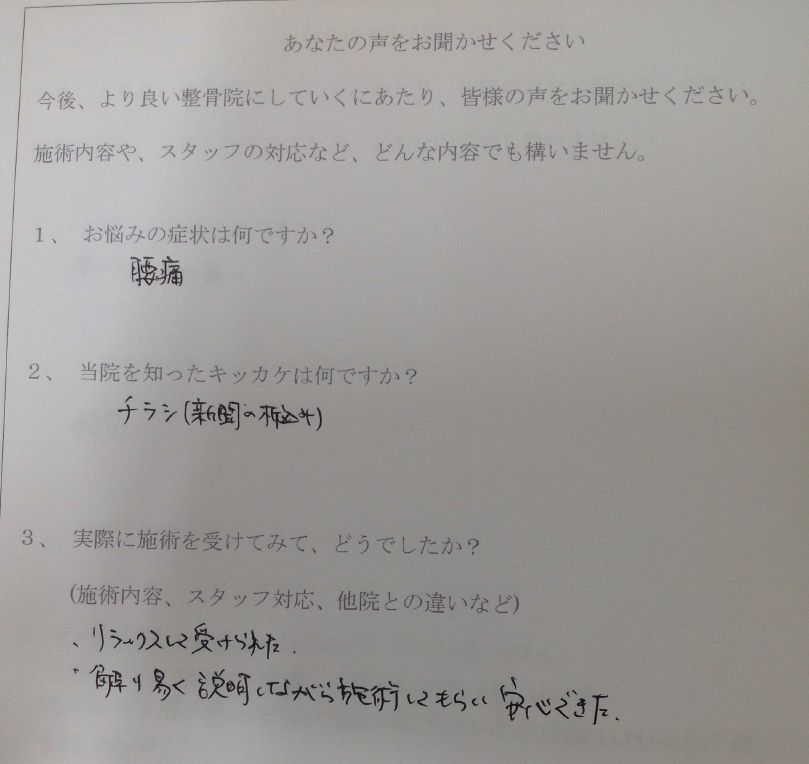 あなたの声をお聞かせください
今後、より良い整骨院にしていくにあたり、皆様の声をお聞かせください。
施術内容や、スタッフの対応など、どんな内容でも構いません。
１、 お悩みの症状は何ですか？
腰痛
２、 当院を知ったキッカケは何ですか？
チラシ(新聞の折込み)
３、 実際に施術を受けてみて、どうでしたか？
(施術内容、スタッフ対応、他院との違いなど)
、リラックスして受けられた.
・解り易く説明しながら施術してもらい安心できた.